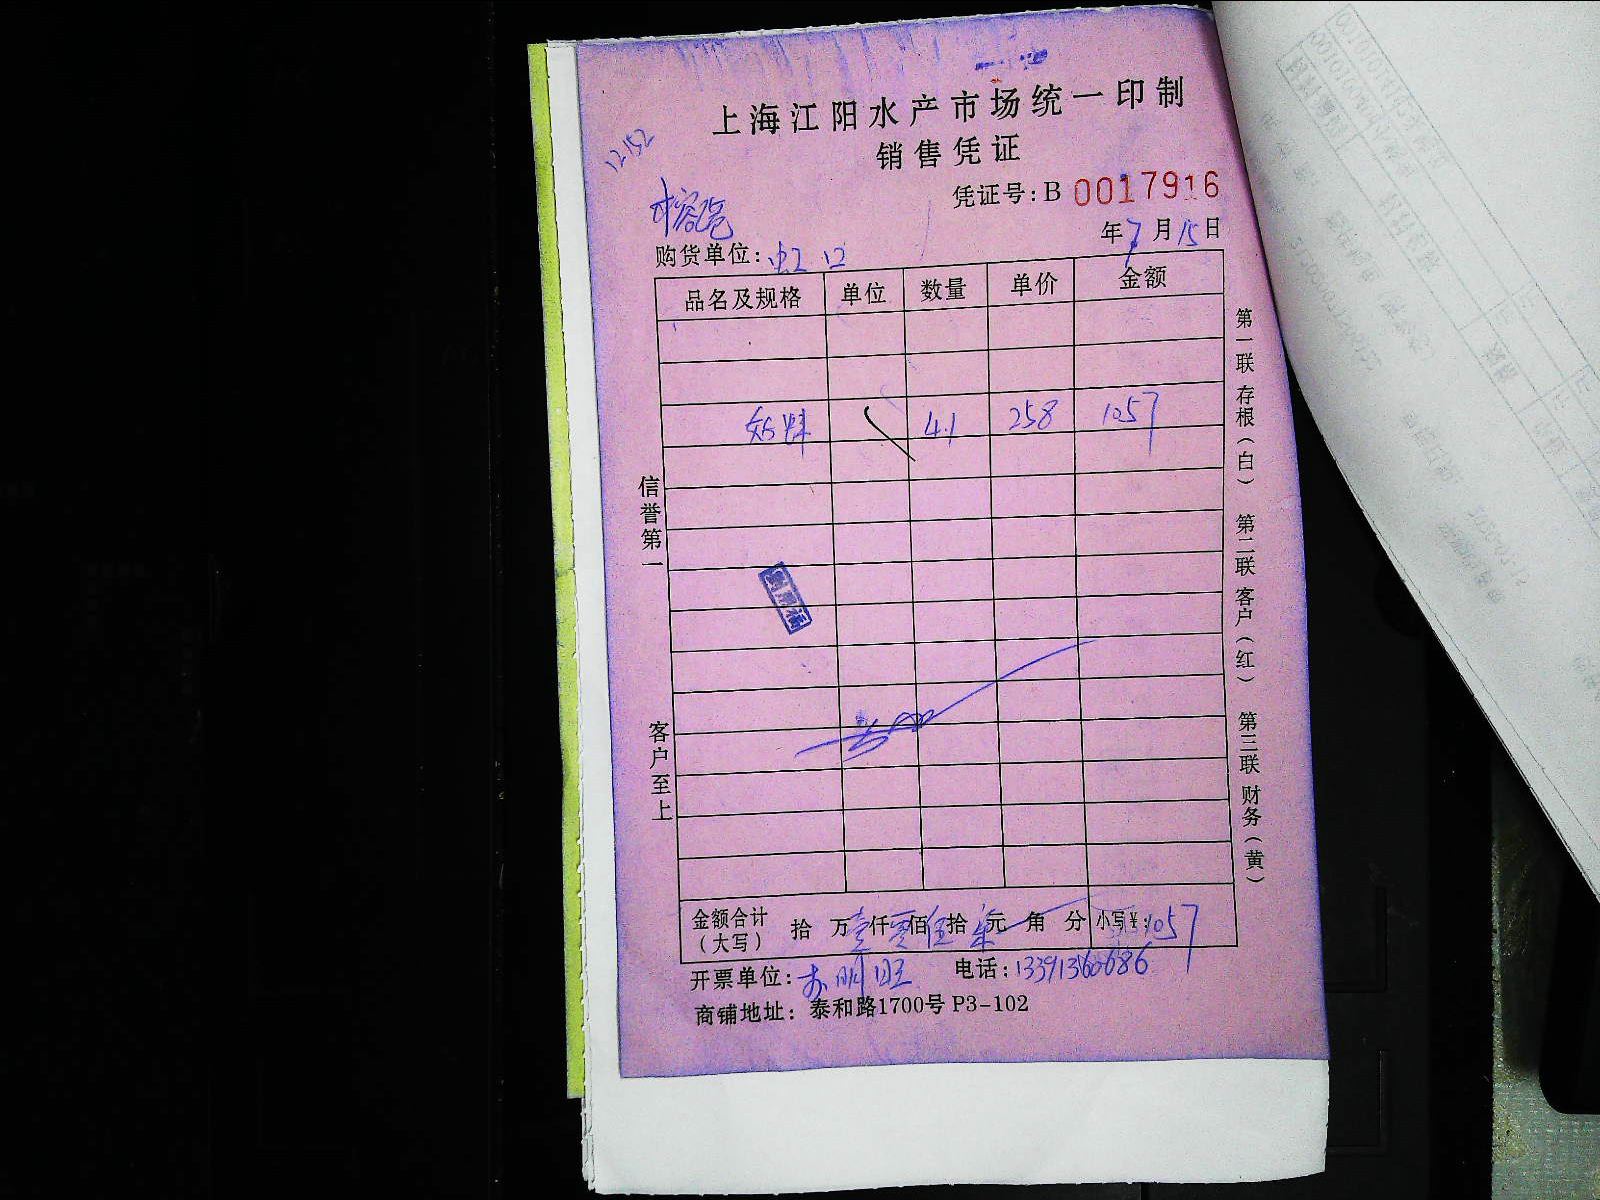 上海江阳水产市场统一印制
销售凭证
12152
凭证号:B 0017916
年7月15日
购货单位:虹口
品名及规格 单位 数量 单价 金额
4.1 258 1057
信誉第一
客户至上
第一联 存根(白) 第二联 客户(红) 第三联 财务(黄)
金额合计(大写) 拾 万壹仟零佰伍拾柒元 角 分 小写¥:1057
开票单位: 电话:13391360686
商铺地址: 泰和路1700号 P3-102